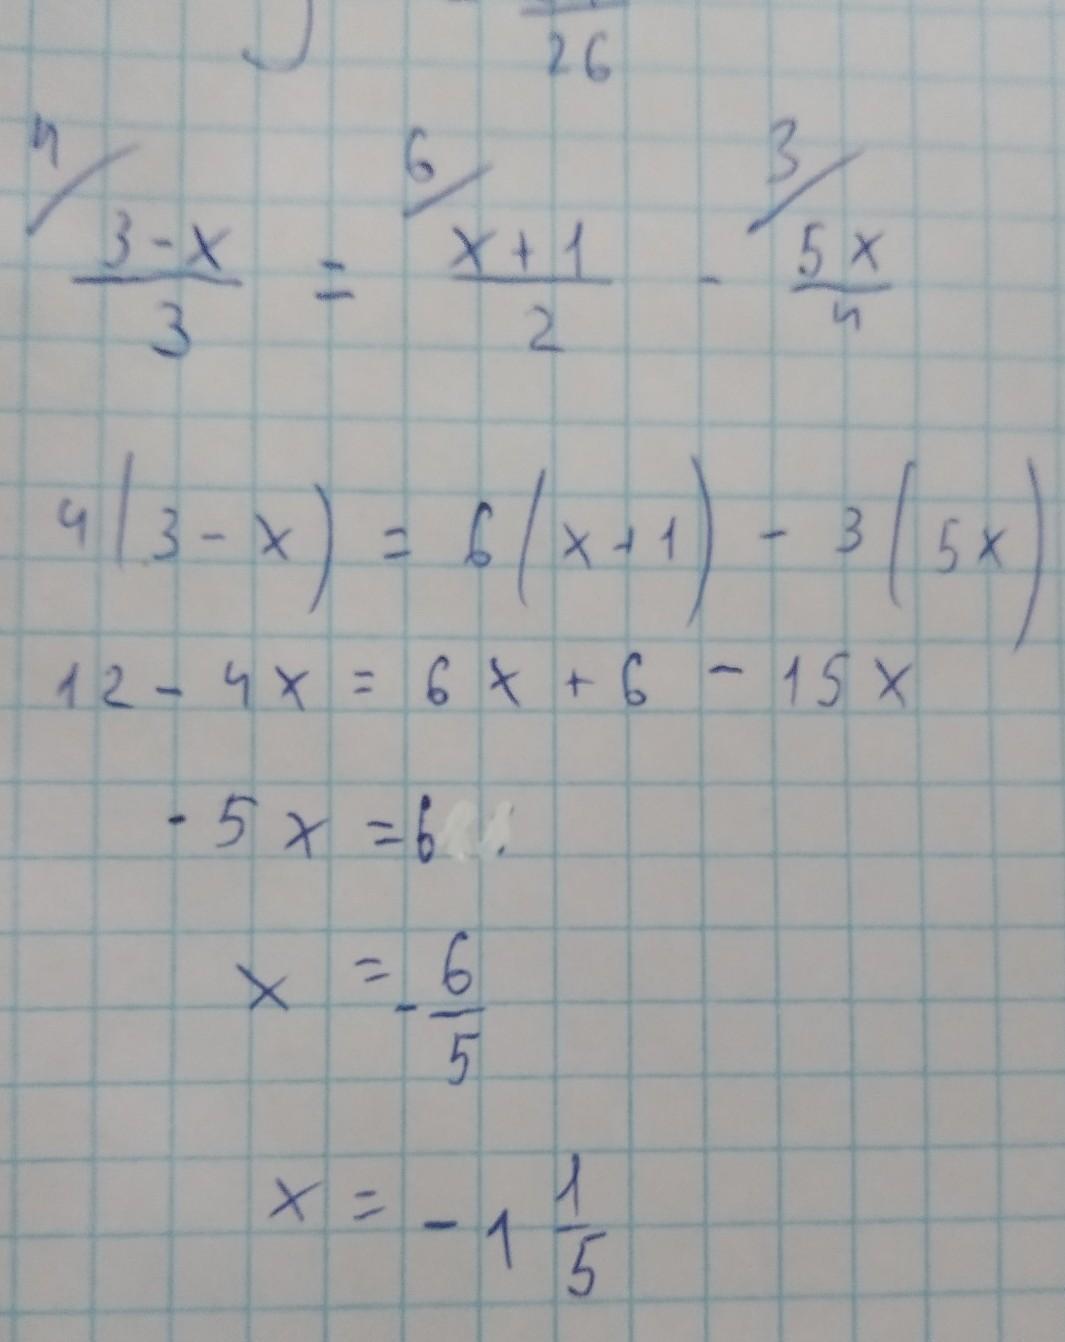 26
4/ 6/ 3/
(3-x)/3 = (x+1)/2 - 5x/4
4(3-x) = 6(x+1) - 3(5x)
12 - 4x = 6x + 6 - 15x
-5x = 6
x = -6/5
x = -1 1/5